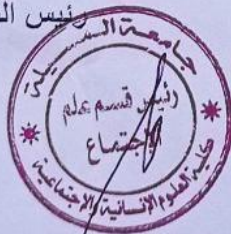 رئيس ال
جامعة المسيلة
رئيس قسم علم
الاجتماع
كلية العلوم الإنسانية والاجتماعية